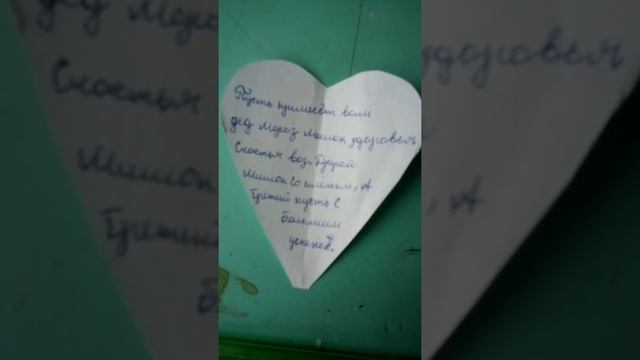 Пусть принесёт вам
дед мороз мешок здоровья
Счастья воз. Другой
Мешок со смехом, А
Третий пусть с
большим
успехом.